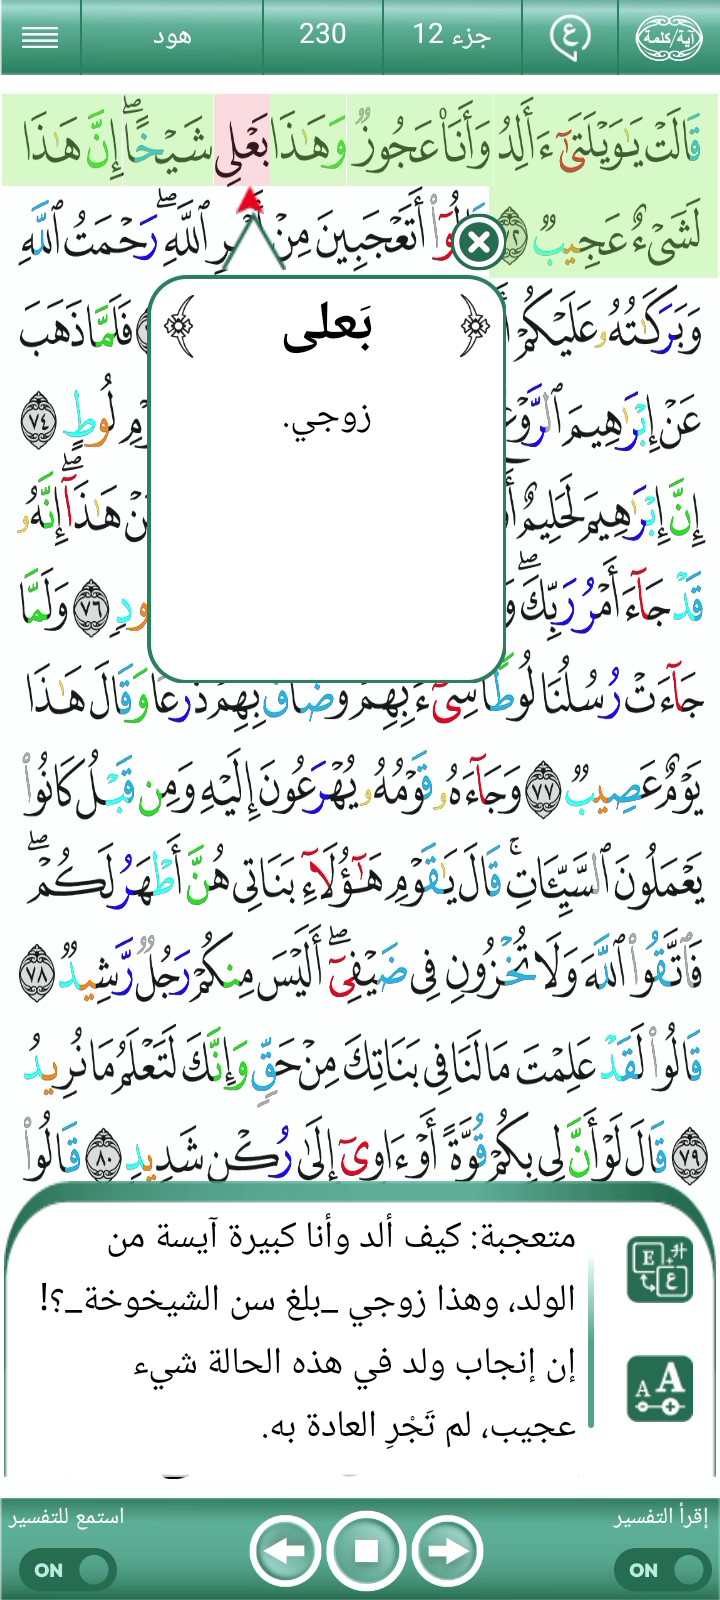 آية/كلمة
ع
جزء 12
230
هود
قَالَتْ يَـٰوَيْلَتَىٰٓ ءَأَلِدُ وَأَنَا۠ عَجُوزٌ وَهَـٰذَا بَعْلِى شَيْخًا ۖ إِنَّ هَـٰذَا
لَشَىْءٌ عَجِيبٌ أَتَعْجَبِينَ مِنْ ٱللَّهِ ۖ رَحْمَتُ ٱللَّهِ
وَبَرَكَـٰتُهُۥ عَلَيْكُمْ فَلَمَّا ذَهَبَ
عَنْ إِبْرَٰهِيمَ لُوطٍ ٧٤
إِنَّ إِبْرَٰهِيمَ لَحَلِيمٌ هَـٰذَآ ۖ إِنَّهُۥ
قَدْ جَآءَ أَمْرُ رَبِّكَ ۖ ٧٦ وَلَمَّا
جَآءَتْ رُسُلُنَا لُوطًا سِىٓءَ بِهِمْ وَضَاقَ بِهِمْ ذَرْعًا وَقَالَ هَـٰذَا
يَوْمٌ عَصِيبٌ ٧٧ وَجَآءَهُۥ قَوْمُهُۥ يُهْرَعُونَ إِلَيْهِ وَمِن قَبْلُ كَانُوا۟
يَعْمَلُونَ ٱلسَّيِّـَٔاتِ ۚ قَالَ يَـٰقَوْمِ هَـٰٓؤُلَآءِ بَنَاتِى هُنَّ أَطْهَرُ لَكُمْ ۖ
فَٱتَّقُوا۟ ٱللَّهَ وَلَا تُخْزُونِ فِى ضَيْفِىٓ ۖ أَلَيْسَ مِنكُمْ رَجُلٌ رَّشِيدٌ ٧٨
قَالُوا۟ لَقَدْ عَلِمْتَ مَا لَنَا فِى بَنَاتِكَ مِنْ حَقٍّ وَإِنَّكَ لَتَعْلَمُ مَا نُرِيدُ
٧٩ قَالَ لَوْ أَنَّ لِى بِكُمْ قُوَّةً أَوْ ءَاوِىٓ إِلَىٰ رُكْنٍ شَدِيدٍ ٨٠ قَالُوا۟
بَعلى
زوجي.
متعجبة: كيف ألد وأنا كبيرة آيسة من
الولد، وهذا زوجي _بلغ سن الشيخوخة_؟!
إن إنجاب ولد في هذه الحالة شيء
عجيب، لم تَجْرِ العادة به.
E
ع
A A
إقرأ التفسير
استمع للتفسير
ON
ON